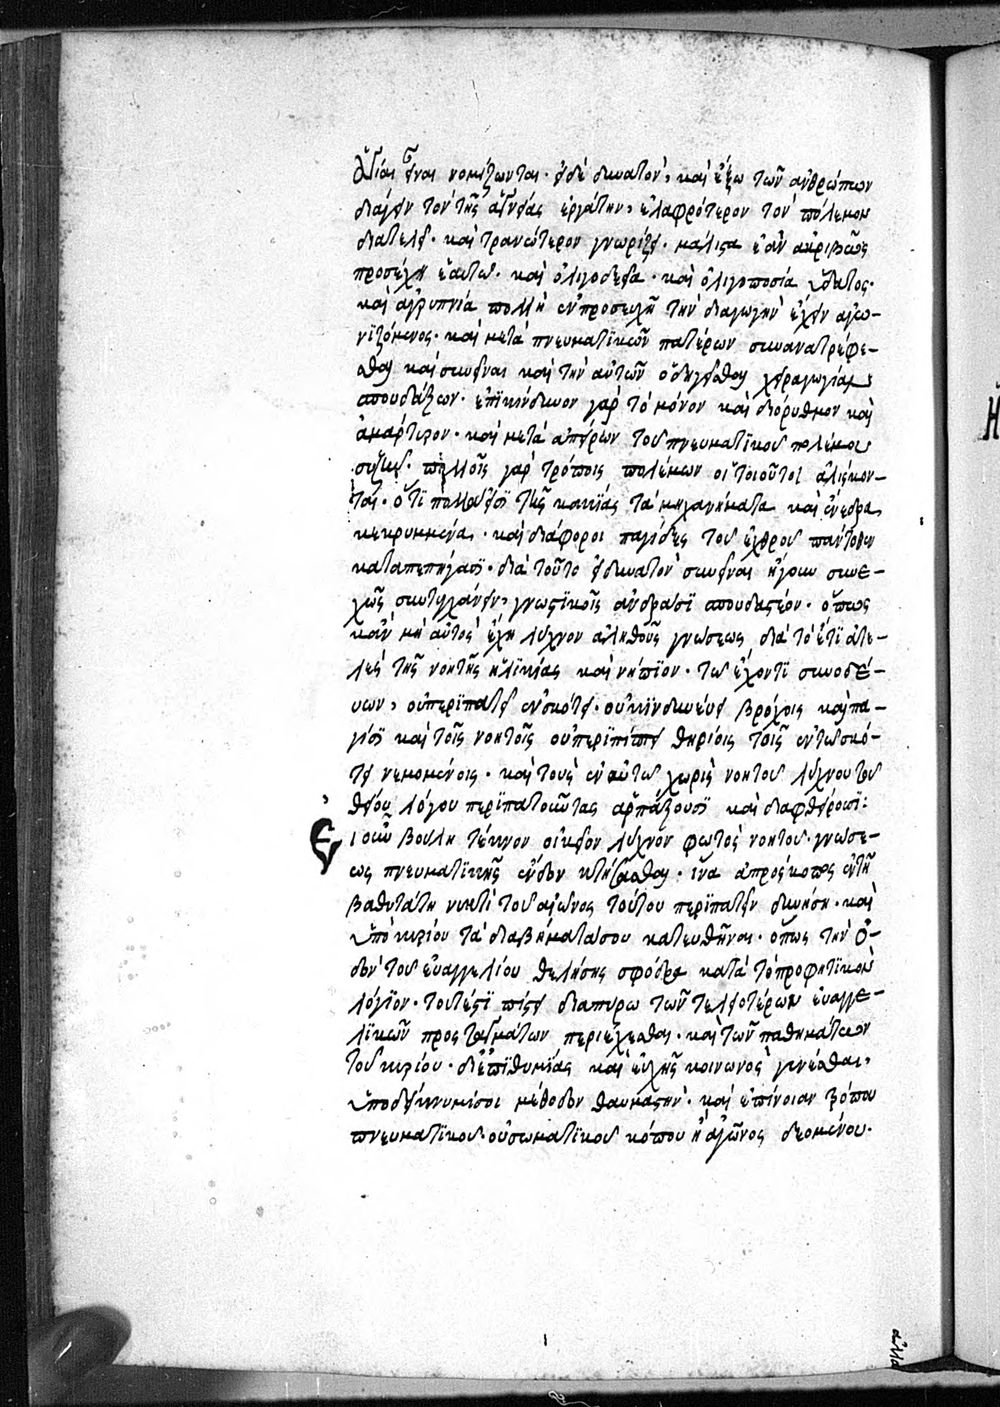 ἅγιαι εἶναι νομίζωνται· εἰ δὲ δυνατόν, καὶ ἔξω τῶν ἀνθρώπων
διάγειν τὸν τῆς ἁγνείας ἐργάτην, ἐλαφρότερον τὸν πόλεμον
διατελεῖ· καὶ τρανώτερον γνωρίζει· μάλιστα ἐὰν ἀκριβῶς
προσέχῃ ἑαυτῷ· καὶ ὀλιγοδεΐα· καὶ ὀλιγοποσία ὕδατος·
καὶ ἀγρυπνία πολλῆ ἐν προσευχῇ τὴν διαγωγὴν ἔχειν ἀγω-
νιζόμενος· καὶ μετὰ πνευματικῶν πατέρων συναναστρέφε-
σθαι καὶ συνεῖναι καὶ τὴν αὐτῶν ὁδηγεῖσθαι χειραγωγίαν
σπουδάζων· ἐπικίνδυνον γὰρ τὸ μόνον καὶ ἰδιόρυθμον καὶ
ἀμάρτυρον· καὶ μετὰ ἀπείρων τοῦ πνευματικοῦ πολέμου
συζεῖν· πολλοῖς γὰρ τρόποις πολέμων οἱ τοιοῦτοι ἁλίσκον-
ται· ὅτι πολλά εἰσι τῆς κακίας τὰ μηχανήματα καὶ ἔνεδρα
κεκρυμμένα· καὶ διάφοροι παγίδες τοῦ ἐχθροῦ πάντοθεν
καταπεπήγασι· διὰ τοῦτο εἰ δυνατὸν συνεῖναι ἤγουν συνε-
χῶς συντυγχάνειν, γνωστικοῖς ἀνδράσι σπουδαστέον· ὅπως
κἂν μὴ αὐτὸς ἔχῃ λύχνον ἀληθοῦς γνώσεως διὰ τὸ ἔτι ἀτε-
λὲς τῆς νοητῆς ἡλικίας καὶ νήπιον· τῷ ἔχοντι συνοδέ-
υων, οὐ περιπατεῖ ἐν σκότει· οὐ κινδυνεύει βρόχοις καὶ πα-
γίσι καὶ τοῖς νοητοῖς οὐ περιπίπτει θηρίοις τοῖς ἐν τῷ σκό-
τει νεμομένοις· καὶ τοὺς ἐν αὐτῷ χωρὶς νοητοῦ λύχνου τοῦ
θείου λόγου περιπατοῦντας ἁρπάζουσι καὶ διαφθείρουσι:
Εἰ οὖν βούλη τέκνον οἰκεῖον λύχνον φωτὸς νοητοῦ· γνώσε-
ως πνευματικῆς ἔνδον κτήσασθαι· ἵνα ἀπρόσκοπος ἐν τῇ
βαθυτάτη νυκτὶ τοῦ αἰῶνος τούτου περιπατεῖν δυνήση· καὶ
ὑπὸ κυρίου τὰ διαβήματά σου κατευθῆναι· ὅπως τὴν ὁ-
δὸν τοῦ εὐαγγελίου θελήσης σφόδρα κατὰ τὸ προφητικὸν
λόγιον· τουτέστι πίστει διαπύρω τῶν τελειοτέρων εὐαγγε-
λικῶν προσταγμάτων περιέχεσθαι· καὶ τῶν παθημάτων
τοῦ κυρίου· δι' ἐπιθυμίας καὶ εὐχῆς κοινωνὸς γινέσθαι,
ὑποδείκνυμί σοι μέθοδον θαυμαστήν· καὶ ἐπίνοιαν τρόπου
πνευματικοῦ· οὐ σωματικοῦ κόπου ἢ ἀγῶνος δεομένου·
ἀλλὰ
Ἡ